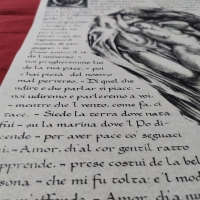 de l'universo, -
noi pregheremmo lui
de la tua pace, - poi
c'hai pietà del nostro
mal perverso. - Di quel che
udire e che parlar vi piace, -
noi udiremo e parleremo a voi,
- mentre che 'l vento, come fa, ci
tace. - Siede la terra dove nata
fui - su la marina dove 'l Po di-
scende - per aver pace co' seguaci
sui. - Amor, ch'al cor gentil ratto
apprende, - prese costui de la bel
sona - che mi fu tolta; e 'l mod
m'offende. - Amor, ch'a